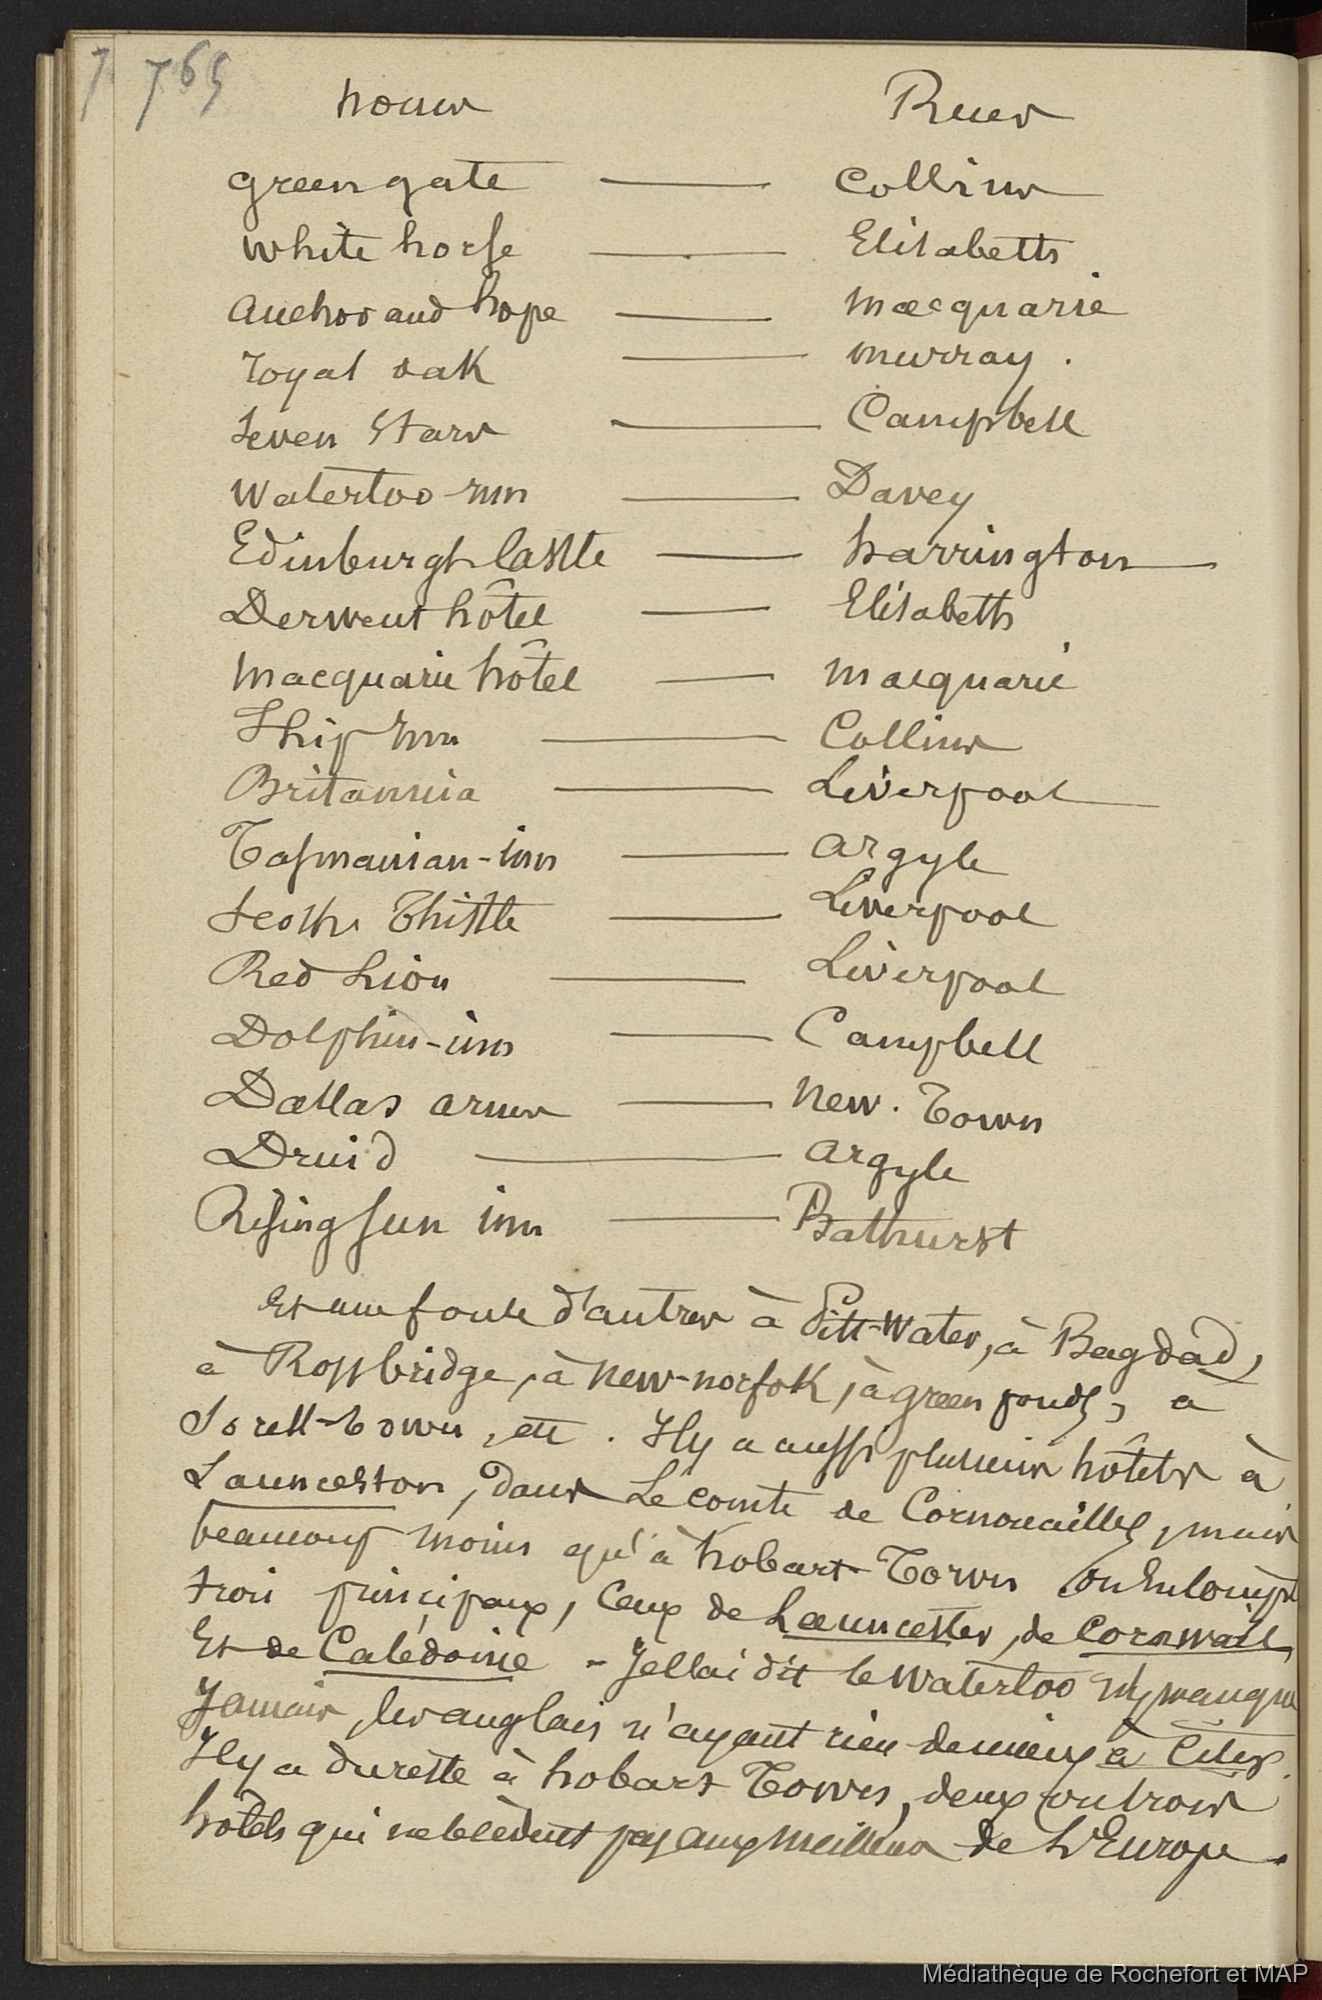 7 765
noms Rues
green gate — Collins
white horse — Elisabeth
anchor and hope — macquarie
royal oak — murray.
Seven Stars — Campbell
Waterloo-inn — Davey
Edinburgh Castle — harrington
Derwent hôtel — Elisabeth
macquarie hôtel — macquarie
Ship inn — Collins
Britannia — Liverpool
Tasmanian-inn — argyle
Scoth Thistle — Liverpool
Red Lion — Liverpool
Dolphin-inn — Campbell
Dallas arms — New. Town
Druid — argyle
Rising sun inn — Bathurst
Et une foule d'autres à Pitt-Water, à Bagdad,
à Rossbridge, à new-norfok, à green ponds, à
Sorell-town, etc. Il y a aussi plusieurs hôtels à
Launceston, dans Le comté de Cornouailles, mais
beaucoup moins qu'à hobart-Town on en compte
trois principaux, Ceux de Launcester, de Cornwall,
Et de Calédonie - Je l'ai dit le Waterloo n'y manque
Jamais, les anglais n'ayant rien de mieux à Citer.
Il y a du reste à hobart Town, deux ou trois
hôtels qui ne le cèdent pas aux meilleurs de L'Europe.
Médiathèque de Rochefort et MAP